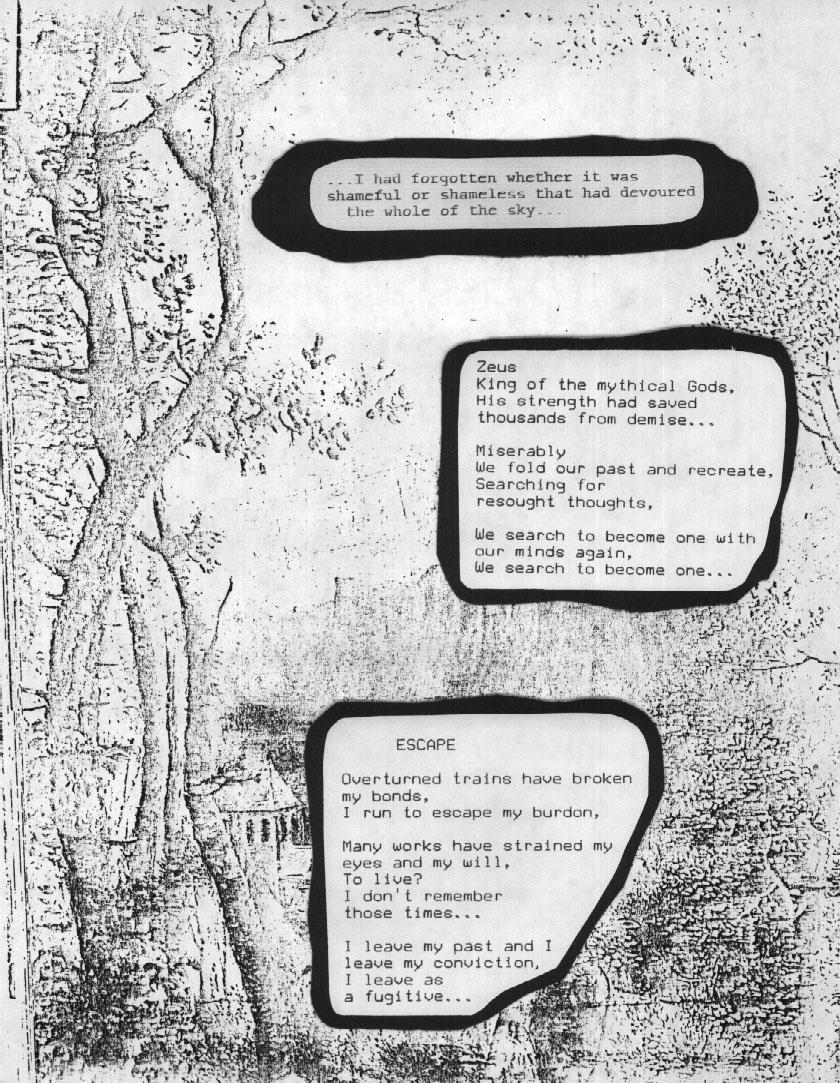 ...I had forgotten whether it was
shameful or shameless that had devoured
the whole of the sky...
Zeus
King of the mythical Gods,
His strength had saved
thousands from demise...
Miserably
We fold our past and recreate,
Searching for
resought thoughts,
We search to become one with
our minds again,
We search to become one...
ESCAPE
Overturned trains have broken
my bonds,
I run to escape my burdon,
Many works have strained my
eyes and my will,
To live?
I don't remember
those times...
I leave my past and I
leave my conviction,
I leave as
a fugitive...